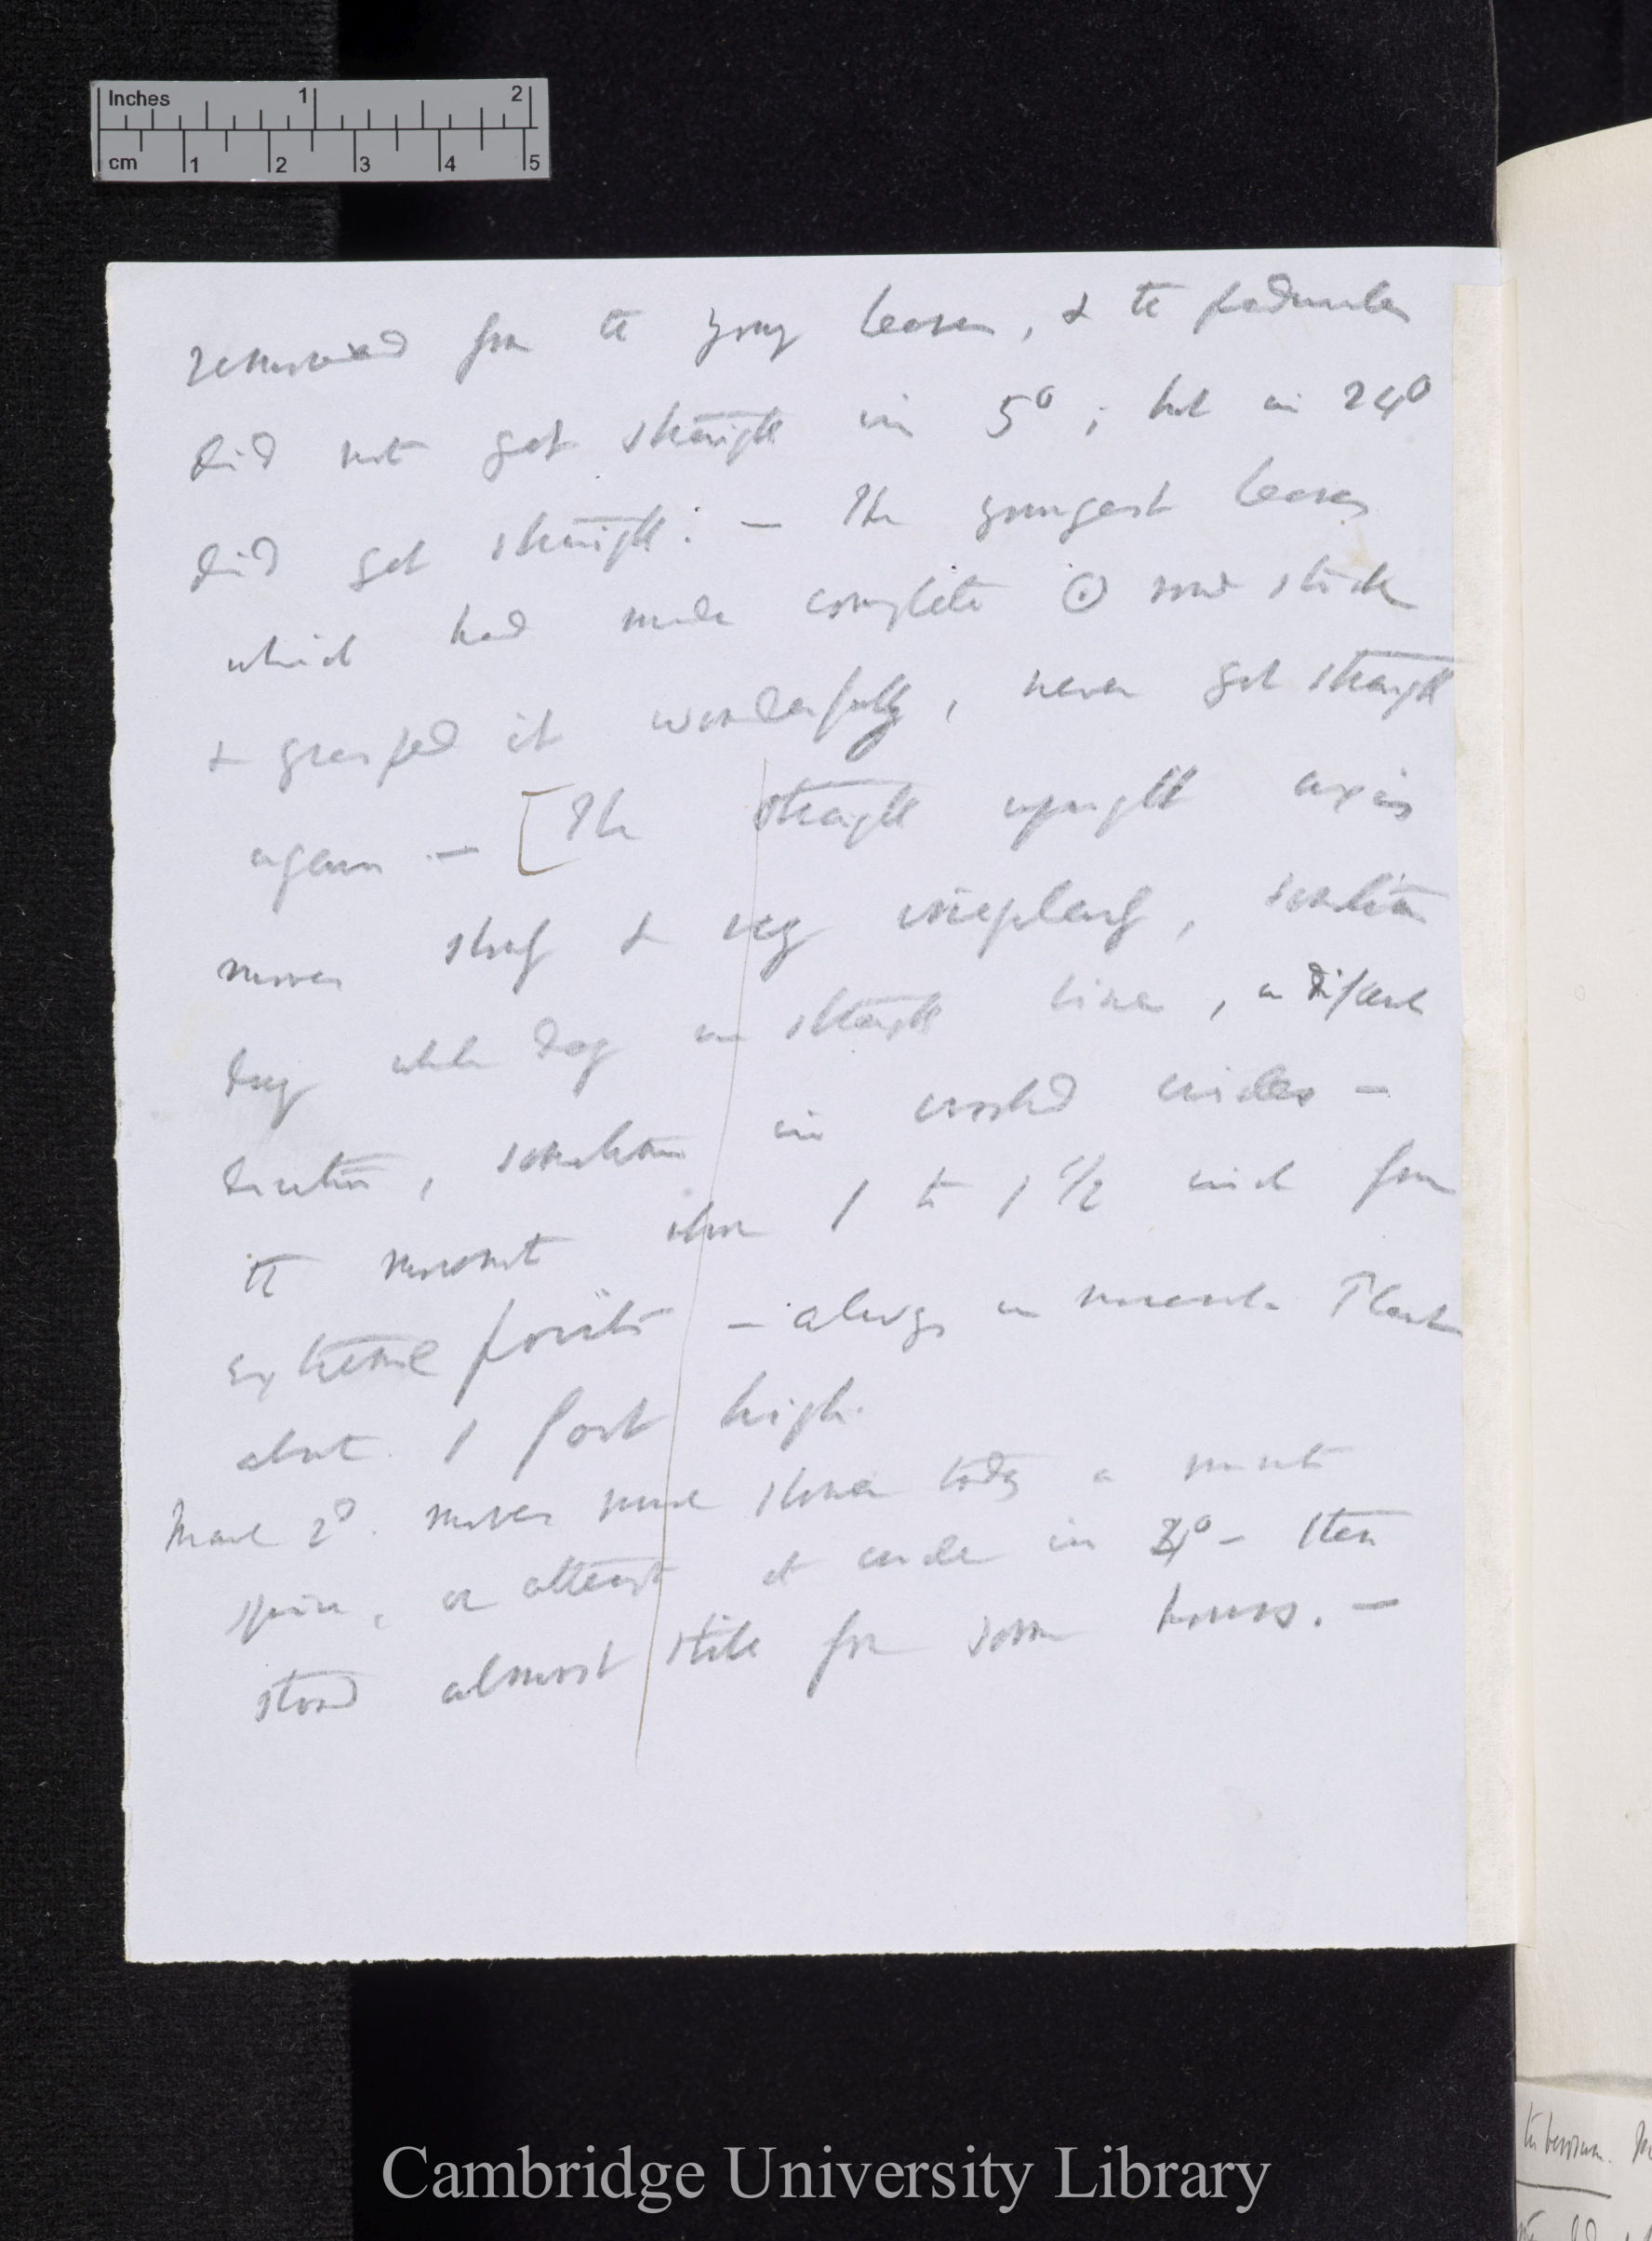 Inches 1 2
cm 1 2 3 4 5
removed from the young leaves, & the peduncles
did not get straight in 5°; but in 24°
did get straight. — The youngest leaves
which had made complete ⊙ round stick
& grasped it wonderfully, never got straight
again — [The straight upright axis
moves slowly & very irregularly, sometimes
day while day in straight line, in different
direction, sometimes in crooked circles —
the movement about 1 to 1 1/2 inch from
extreme points — always in Plant
about 1 foot high.
March 2d. moves much slower today a minute
spire, or attempt at circle in 4° — then
stood almost still for some hours. —
tuberosum.
Cambridge University Library